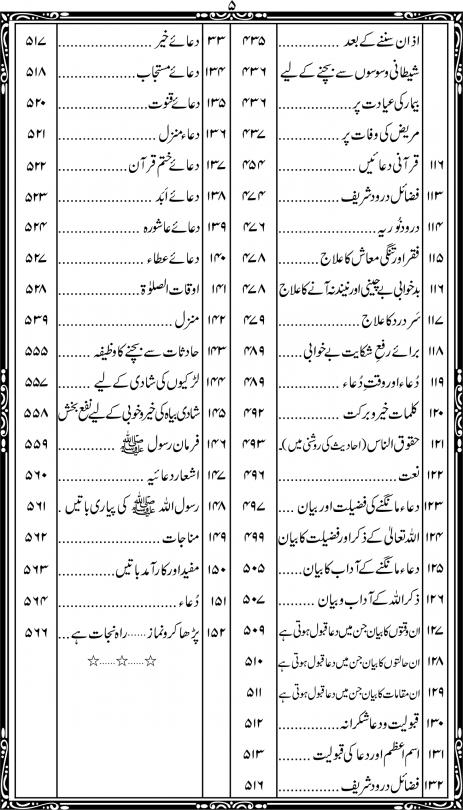 ۵
اذان سننے کے بعد ................ ۴۳۵
شیطانی وسوسوں سے بچنے کے لیے ۴۳۶
بیمار کی عیادت پر ................ ۴۳۶
مریض کی وفات پر ................ ۴۳۷
۱۱۶ قرآنی دعائیں ................ ۴۵۴
۱۱۳ فضائل درود شریف ................ ۴۷۴
۱۱۴ درود نُوریہ ................ ۴۷۶
۱۱۵ فقر اور تنگی معاش کا علاج ........ ۴۷۸
۱۱۶ بدخوابی بے چینی اور نیند نہ آنے کا علاج ۴۷۸
۱۱۷ سَر درد کا علاج ................ ۴۷۹
۱۱۸ برائے رفع شکایت بے خوابی ..... ۴۸۹
۱۱۹ دُعاء اور وقتِ دُعاء ............ ۴۸۹
۱۲۰ کلمات خیر و برکت ............ ۴۹۲
۱۲۱ حقوق الناس (احادیث کی روشنی میں). ۴۹۳
۱۲۲ نعت ................ ۴۹۶
۱۲۳ دعاء مانگنے کی فضیلت اور بیان .... ۴۹۷
۱۲۴ اللہ تعالیٰ کے ذکر اور فضیلت کا بیان ۴۹۹
۱۲۵ دعاء مانگنے کے آداب کا بیان ...... ۵۰۵
۱۲۶ ذکر اللہ کے آداب و بیان ......... ۵۰۷
۱۲۷ ان وقتوں کا بیان جن میں دعا قبول ہوتی ہے ۵۰۹
۱۲۸ ان حالتوں کا بیان جن میں دعا قبول ہوتی ہے ۵۱۰
۱۲۹ ان مقامات کا بیان جن میں دعا قبول ہوتی ہے ۵۱۱
۱۳۰ قبولیت و دعا شکرانہ ............ ۵۱۲
۱۳۱ اسم اعظم اور دعا کی قبولیت ........ ۵۱۳
۱۳۲ فضائل درود شریف ............ ۵۱۶
۳۳ دعائے خیر ................ ۵۱۷
۱۳۴ دعائے مستجاب ................ ۵۱۸
۱۳۵ دعائے قنوت ................ ۵۲۰
۱۳۶ دعاء منزل ................ ۵۲۱
۱۳۷ دعائے ختم قرآن ................ ۵۲۲
۱۳۸ دعائے اَبَد ................ ۵۲۳
۱۳۹ دعائے عاشورہ ................ ۵۲۴
۱۴۰ دعائے عطاء ................ ۵۲۷
۱۴۱ اوقات الصلوٰۃ ................ ۵۲۸
۱۴۲ منزل ................ ۵۳۹
۱۴۳ حادثات سے بچنے کا وظیفہ ........ ۵۵۵
۱۴۴ لڑکیوں کی شادی کے لیے ........ ۵۵۷
۱۴۵ شادی بیاہ کی خیر و خوبی کے لیے نفع بخش ۵۵۸
۱۴۶ فرمان رسول ﷺ ............ ۵۵۹
۱۴۷ اشعار دعائیہ ................ ۵۶۰
۱۴۸ رسول اللہ ﷺ کی پیاری باتیں . ۵۶۱
۱۴۹ مناجات ................ ۵۶۲
۱۵۰ مفید اور کارآمد باتیں ............ ۵۶۳
۱۵۱ دُعاء ................ ۵۶۴
۱۵۲ پڑھا کرو نماز ...... راہ نجات ہے ... ۵۶۶
☆......☆......☆